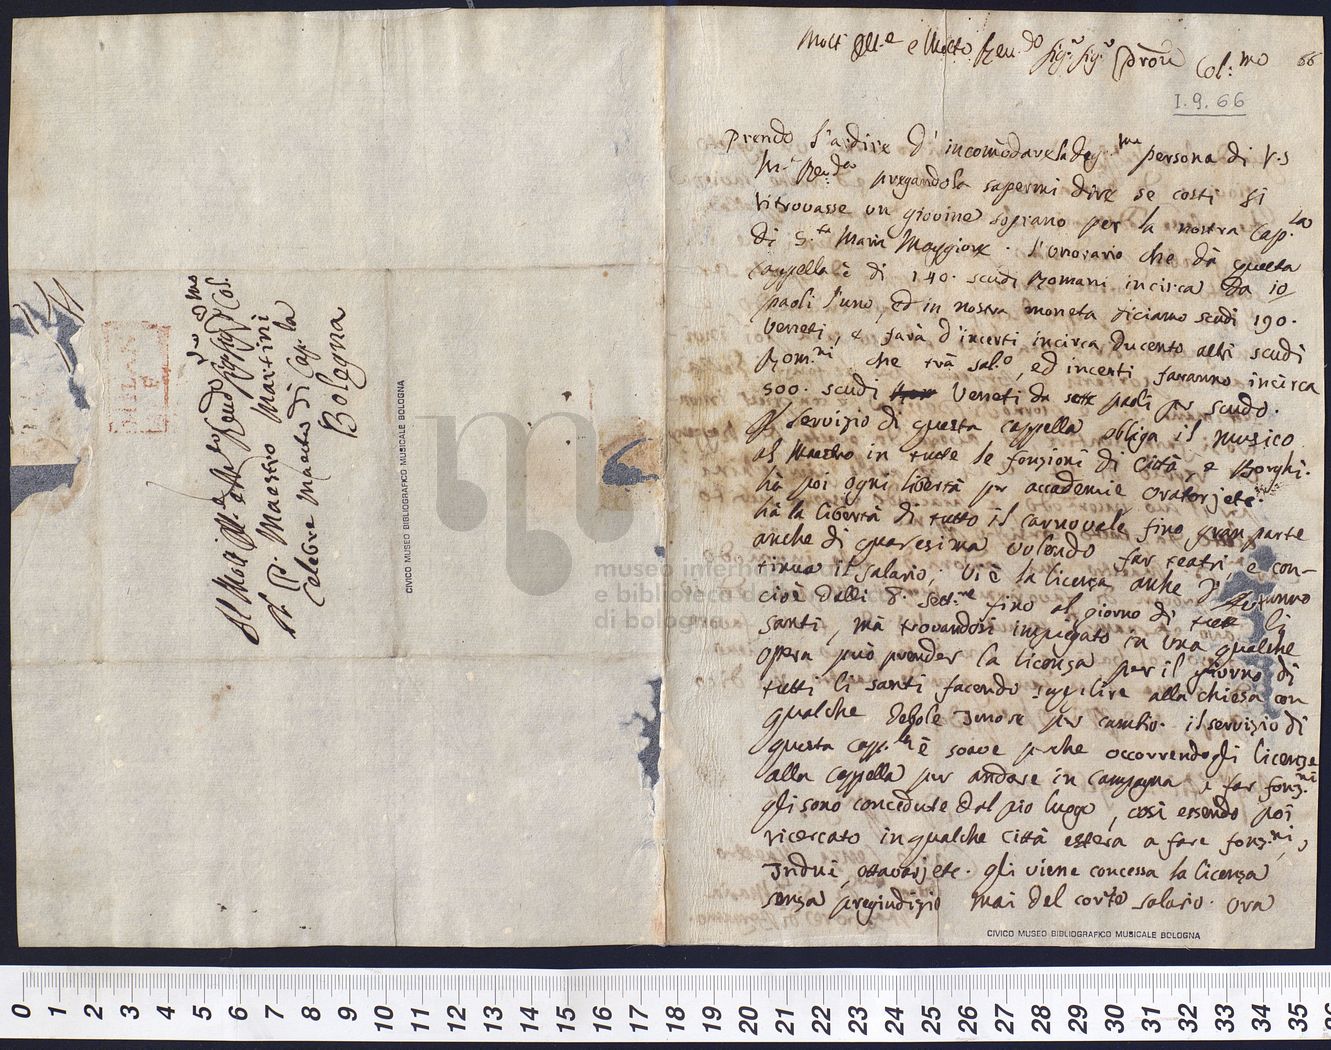 Molt Ill.e e Molto Reu.do Sig.r Sig.r Pròn Col:mo
66
I.9.66
Prendo l'ardire d'incomodare la deg.ma persona di V.S
M.to Reu.da pregandola sapermi dire se costì si
ritrouasse un giouine soprano per la nostra Cap.la
di S.ta Maria Maggiore. l'onorario che dà questa
Cappella è di 140. scudi Romani incirca da 10
paoli l'uno, ed in nostra moneta diciamo scudi 190.
Veneti, e farà d'incerti incirca ducento altri scudi
Rom.ni, che trà sal.o, ed incerti faranno incirca
500. scudi Veneti da sette paoli per scudo.
Il servizio di questa cappella obliga il musico
al Maestro in tutte le fonzioni di Città, e Borghi.
hà poi ogni libertà pr accademie, oratorj ete.
hà la libertà di tutto il carnouale fino gran parte
anche di quaresima uolendo far teatri, e con-
tinua il salario; Vi è la licenza anche d'Autunno
cioè dalli 8. sett.re fino al giorno di tutti li
santi, mà trouandosi impiegato in una qualche
opera può prender la licenza per il giorno di
tutti li santi facendo supplire alla chiesa con
qualche debole Tenore per cambio. il seruizio di
questa Capp.la è soaue perche occorrendogli licenze
alla Cappella per andare in campagna à far fonz.ni
gli sono concedute dal pio luogo, così essendo poi
ricercato in qualche città estera a fare fonz.ni,
Tridui, ottauarj ete. gli viene concessa la licenza
senza pregiudizio mai del corso salario. ora
CIVICO MUSEO BIBLIOGRAFICO MUSICALE BOLOGNA
Al Molt Ill.e e Mlto Reudo Sig.r Sig.r Col.mo
Il P. Maestro Martini
Celebre Maestro di Cap.la
Bologna
CIVICO MUSEO BIBLIOGRAFICO MUSICALE BOLOGNA
museo internazionale
e biblioteca della musica
di bologna
0 1 2 3 4 5 6 7 8 9 10 11 12 13 14 15 16 17 18 19 20 21 22 23 24 25 26 27 28 29 30 31 32 33 34 35